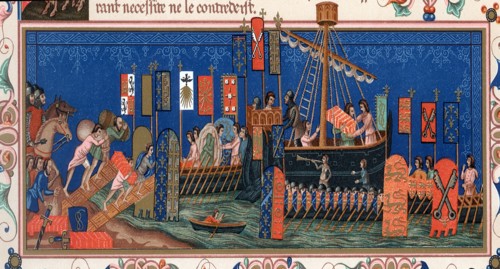 rant necessite ne le contredist.